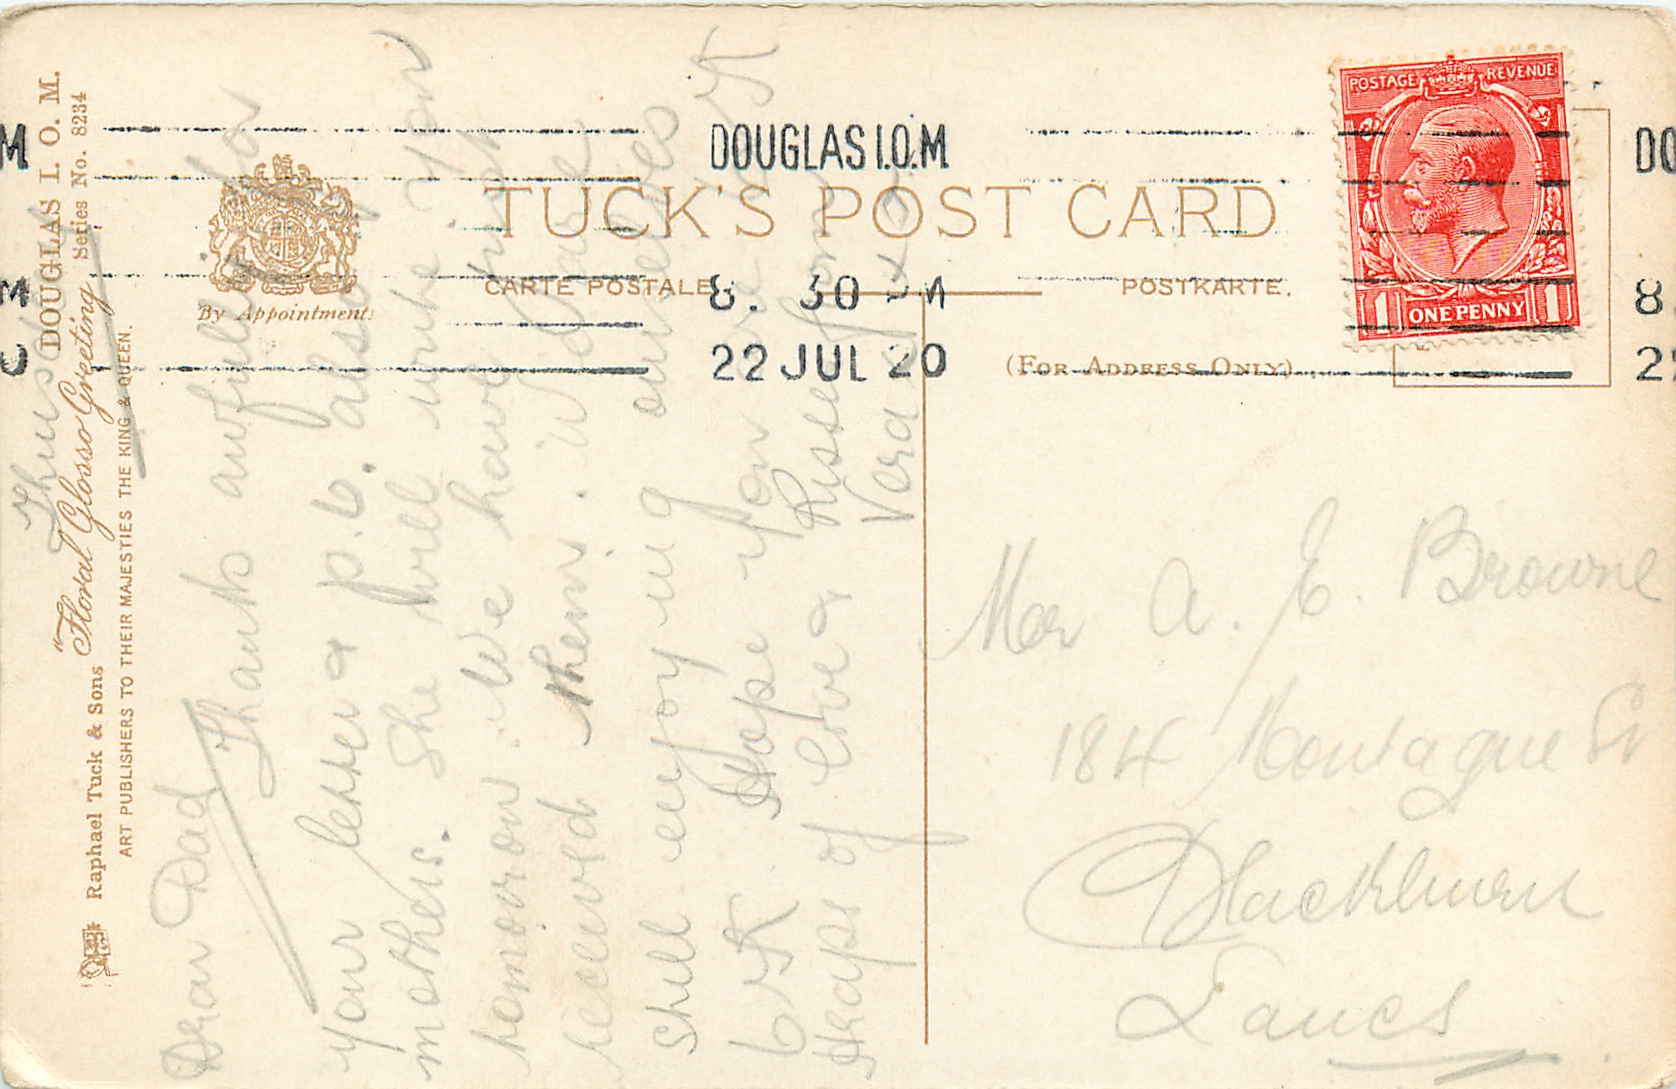 DOUGLAS I. O. M.
Series No. 8234
"Floral Glosso Greeting
Raphael Tuck & Sons
ART PUBLISHERS TO THEIR MAJESTIES THE KING & QUEEN.
By Appointment.
TUCK'S POST CARD
CARTE POSTALE
POSTKARTE.
(FOR ADDRESS ONLY)
POSTAGE REVENUE
1 ONE PENNY 1
M
DOUGLAS I.O.M
DO
8. 30 PM
8
22 JUL 20
Thus
Dear Dad
Thanks awfully for
your letter & p.o. also for
mothers. She will write you
tomorrow. We have not
received them.
still enjoying ourselves
Hope you are
Heaps of love &
from
Vera
Mr A. E. Browne
184 Montague St
Blackburn
Lancs